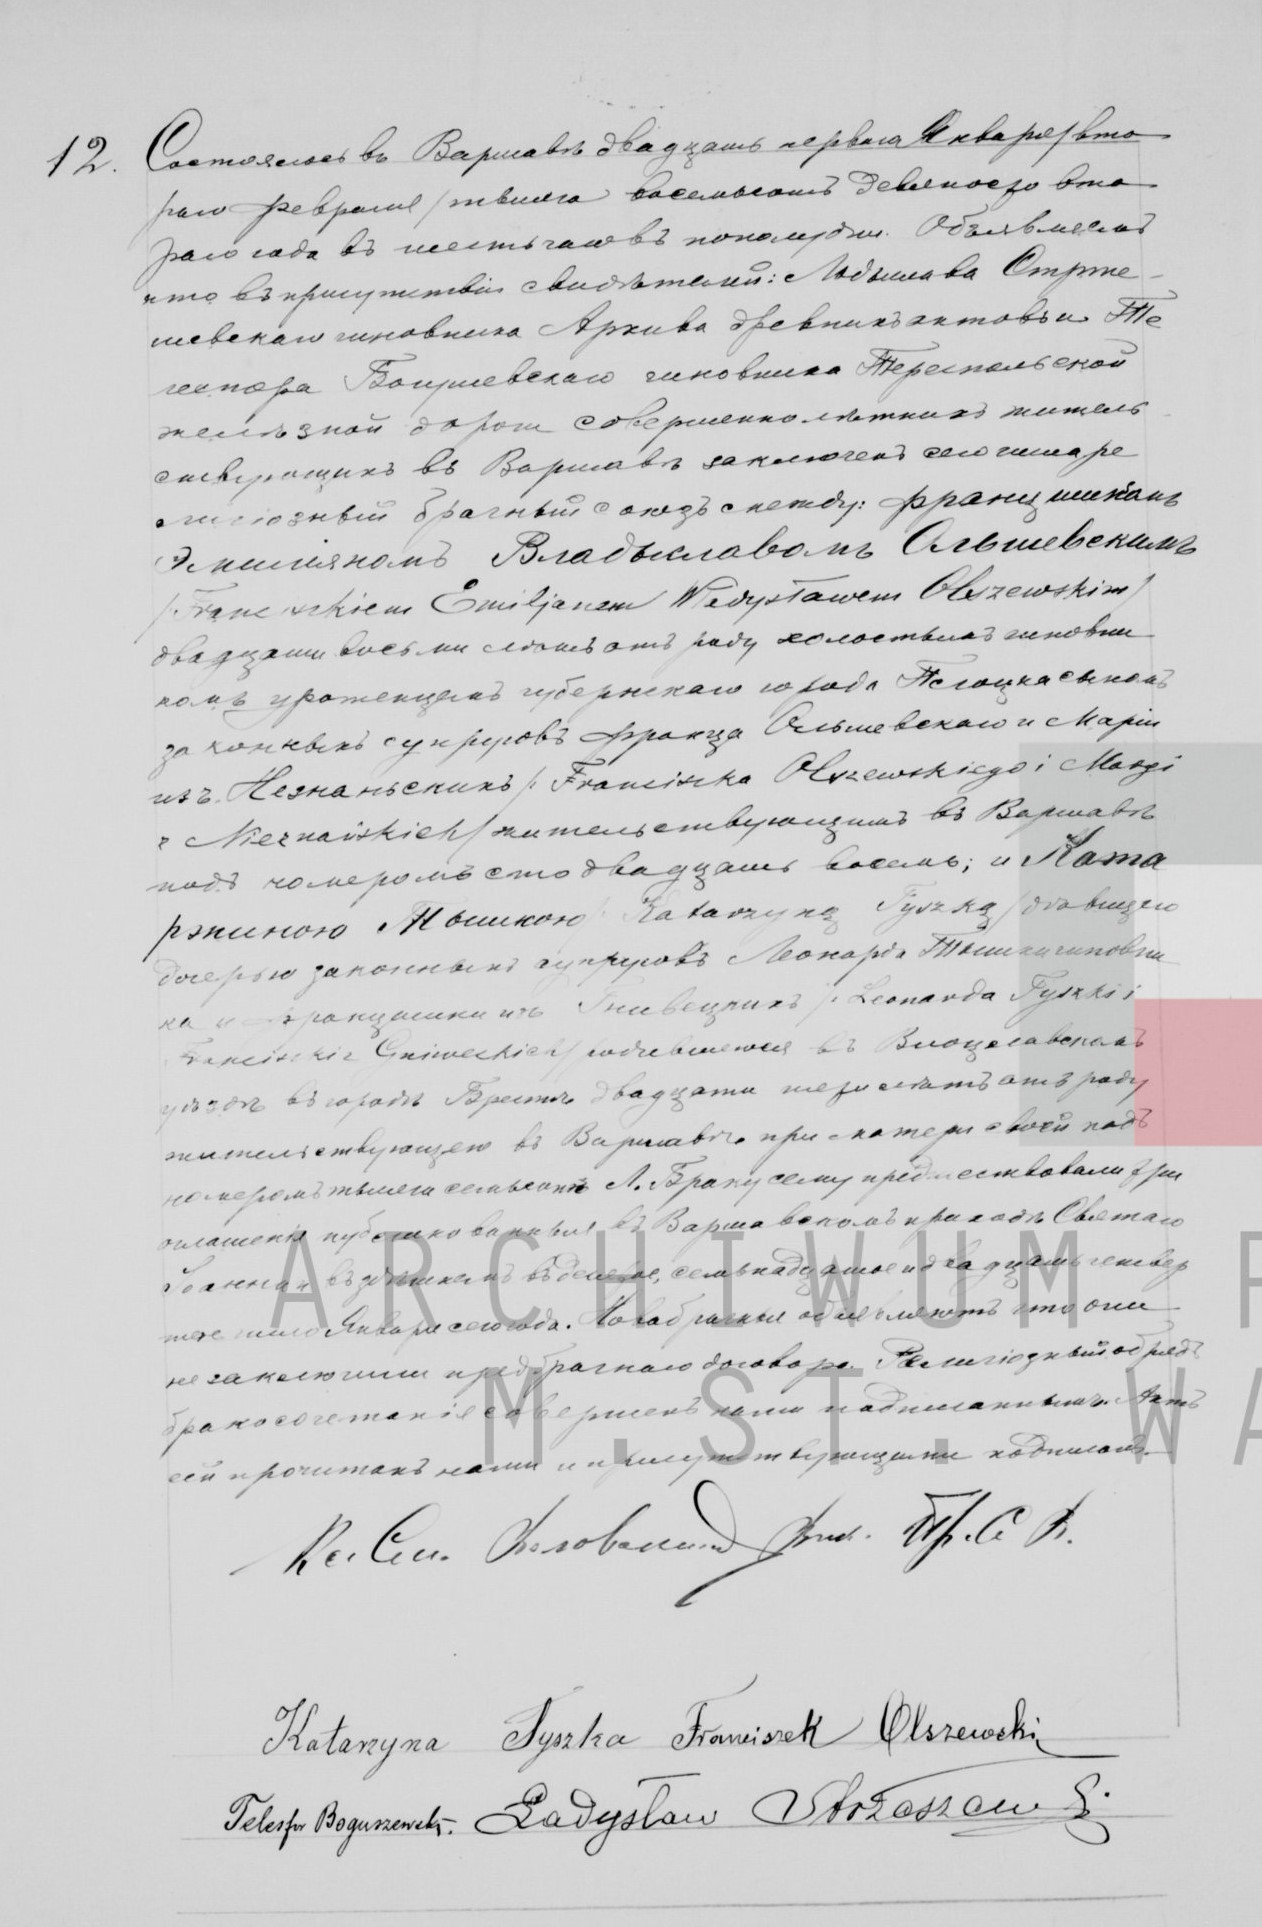 12. Состоялось въ Варшавѣ двадцать перваго Января/вто
раго Февраля/тысяча восемьсотъ девяносто вто
раго года въ шесть часовъ пополудни. Объявляемъ
что въ присутствіи свидѣтелей: Ладыслава Стрже
шевскаго чиновника Архива древнихъ актовъ и Те
лесфора Богушевскаго чиновника Тереспольской
желѣзной дороги совершеннолѣтнихъ житель
ствующихъ въ Варшавѣ заключенъ сего числа ре
лигіозный брачный союзъ между: Францишкомъ
Эмиліяномъ Владыславомъ Ольшевскимъ
/Franciszkiem Emiljanem Władysławem Olszewskim/
двадцати восьми лѣтъ отъ роду холостымъ чиновни
комъ уроженцемъ губернскаго города Плоцка сыномъ
законныхъ супруговъ Франца Ольшевскаго и Маріи
изъ Незнаньскихъ /Franciszka Olszewskiego i Maryi
z Nieznańskich/ жительствующимъ въ Варшавѣ
подъ номеромъ сто двадцать восемь; и Ката
ржиною Тышкою /Katarzyną Tyszką/ дѣвицею
дочерью законныхъ супруговъ Леонарда Тышки чиновни
ка и Францишки изъ Гнивецкихъ /Leonarda Tyszki i
Franciszki z Gniweckich/ родившеюся въ Влоцлавскомъ
уѣздѣ въ городѣ Брестѣ двадцати трехъ лѣтъ отъ роду
жительствующею въ Варшавѣ при матери своей подъ
номеромъ тысяча семьсотъ Л. Браку сему предшествовали три
оглашенія публикованныя въ Варшавскомъ приходѣ Святаго
Іоанна и въ здѣшнемъ въ десятое, семнадцатое и двадцать четвер
тое число Января сего года. Новобрачные объявляютъ что они
не заключили предбрачнаго договора. Религіозный обрядъ
бракосочетанія совершенъ нами нижеподписаннымъ. Актъ
сей прочитанъ нами и присутствующими подписанъ.
Katarzyna Tyszka Franciszek Olszewski
Telesfor Boguszewski. Ładysław Strzeszewski
ARCHIWUM P
M.ST.WA